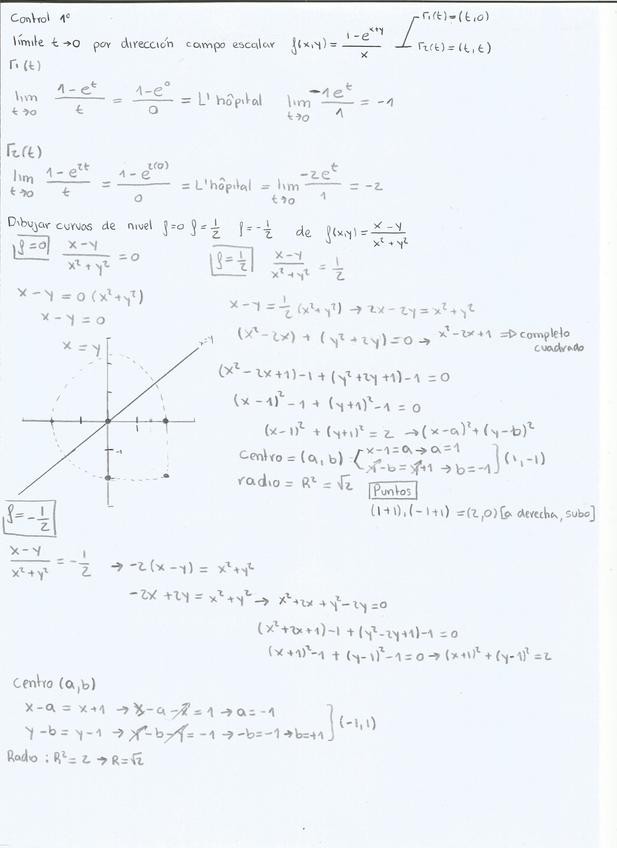 Control 1º
límite t→0 por dirección campo escalar f(x,y) = (1-e^(x+y))/x r₁(t)=(t,0) r₂(t)=(t,t)
r₁(t)
lim t→0 (1-e^t)/t = (1-e^0)/0 = L'hôpital lim t→0 (-1e^t)/1 = -1
r₂(t)
lim t→0 (1-e^(2t))/t = (1-e^(2(0)))/0 = L'hôpital = lim t→0 (-2e^t)/1 = -2
Dibujar curvas de nivel f=0 f=1/2 f=-1/2 de f(x,y) = (x-y)/(x²+y²)
f=0 (x-y)/(x²+y²) = 0
x-y = 0(x²+y²)
x-y = 0
x = y
x=y
-1
f=1/2 (x-y)/(x²+y²) = 1/2
x-y = 1/2 (x²+y²) → 2x-2y = x²+y²
(x²-2x) + (y²+2y) = 0 → x²-2x+1 ⇒ completo
cuadrado
(x²-2x+1)-1+(y²+2y+1)-1 = 0
(x-1)²-1 + (y+1)²-1 = 0
(x-1)² + (y+1)² = 2 → (x-a)²+(y-b)²
Centro = (a,b) x-1=a → a=1
y-b=y+1 → b=-1 (1,-1)
radio = R² = √2 Puntos
(1+1),(-1+1) = (2,0) [a derecha, subo]
f=-1/2
(x-y)/(x²+y²) = -1/2 → -2(x-y) = x²+y²
-2x+2y = x²+y² → x²+2x+y²-2y=0
(x²+2x+1)-1+(y²-2y+1)-1=0
(x+1)²-1 + (y-1)²-1=0 → (x+1)²+(y-1)²=2
Centro (a,b)
x-a = x+1 → x-a-x=1 → a=-1
y-b = y-1 → y-b-y=-1 → -b=-1 → b=+1 (-1,1)
Radio : R²=2 → R=√2